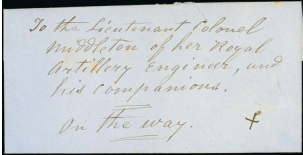 To the Lieutenant Colonel
Middleton of her Royal
Artillery Engineer, and
his companions.
On the way.